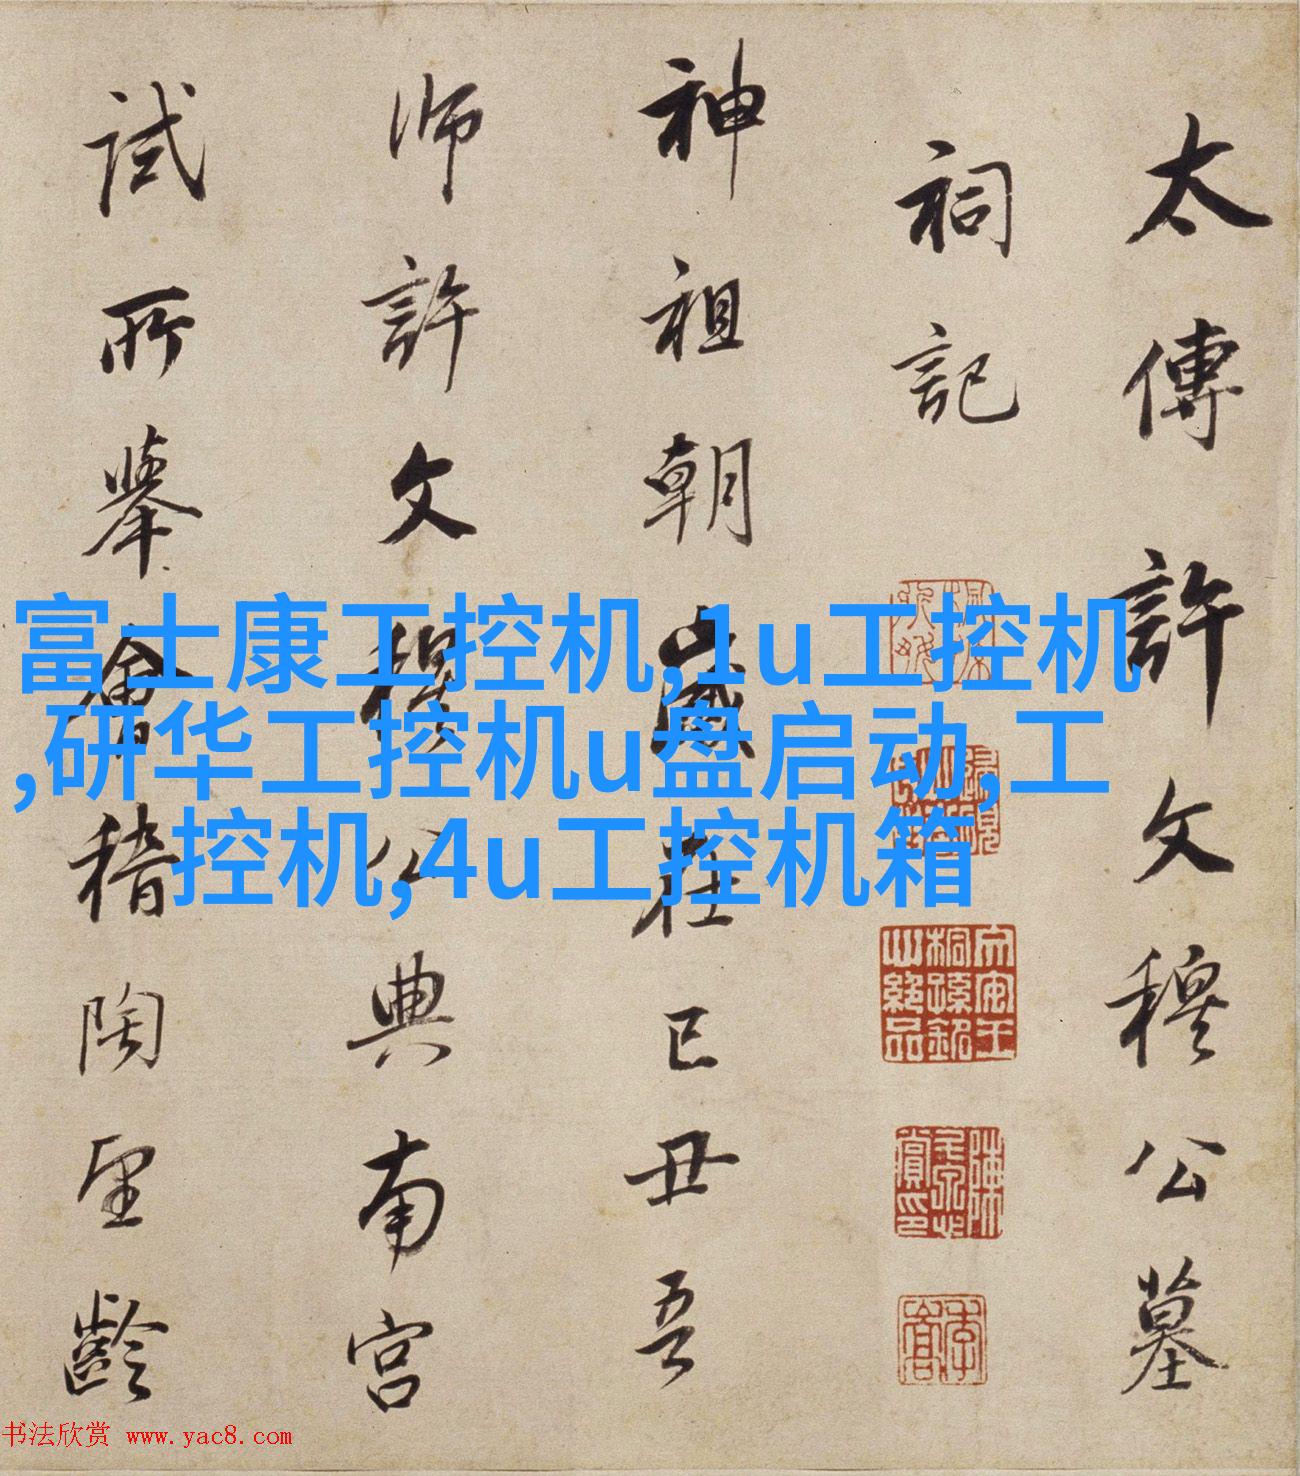 太傳許文穆公墓
祠記
神祖朝歲在己丑吾
師許文穆公典南宮
試所舉會稽陶望齡
富士康工控机,1u工控机
,研华工控机u盘启动,工
控机,4u工控机箱
书法欣赏 www.yac8.com